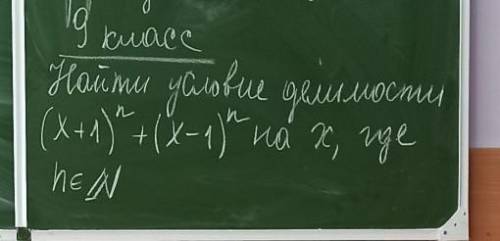 9 класс
Найти условие делимости
(x+1)ⁿ+(x-1)ⁿ на x, где
n∈N